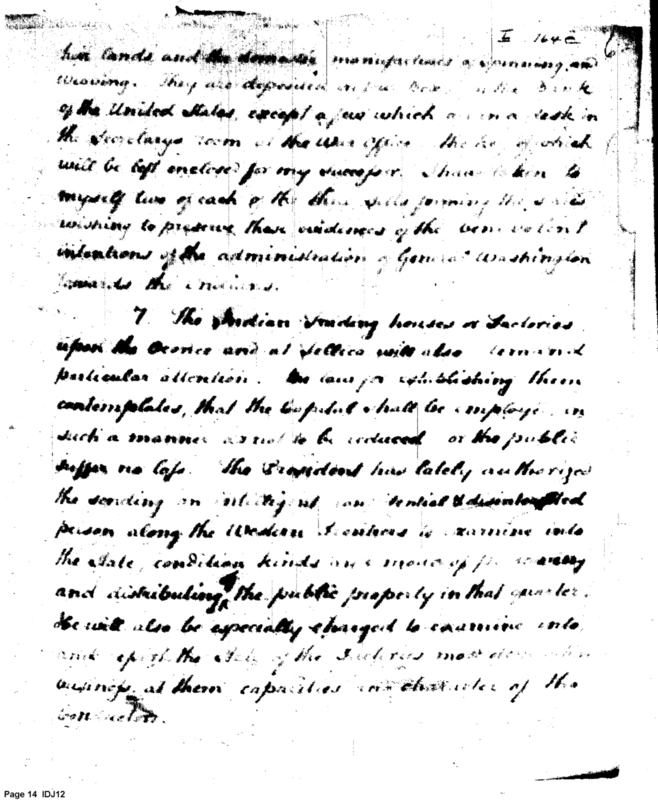 I 164c 6
their lands and the domestic manufactures of spinning and
weaving. They are deposited in two Boxes in the Bank
of the United States, except a few which are in a desk in
the Secretarys room at the War office the key of which
will be left enclosed for my successor. I have taken to
myself two of each of the three sets forming the sales
wishing to preserve these evidences of the benevolent
intentions of the administration of General Washington
towards the indians.
7. The Indian Trading houses or Factories
upon the Oconee and at Tellico will also demand
particular attention. The law for establishing them
contemplates, that the Capital shall be employed in
such a manner as not to be reduced or the public
suffer no loss. The President has lately authorized
the sending an intelligent confidential & disinterested
person along the Western Frontiers to examine into
the State, condition kinds and mode of
and distributing the public property in that quarter.
He will also be especially charged to examine into
and report the State of the Factories mode
business at them capacities and character of the
Conductors.
Page 14 IDJ12